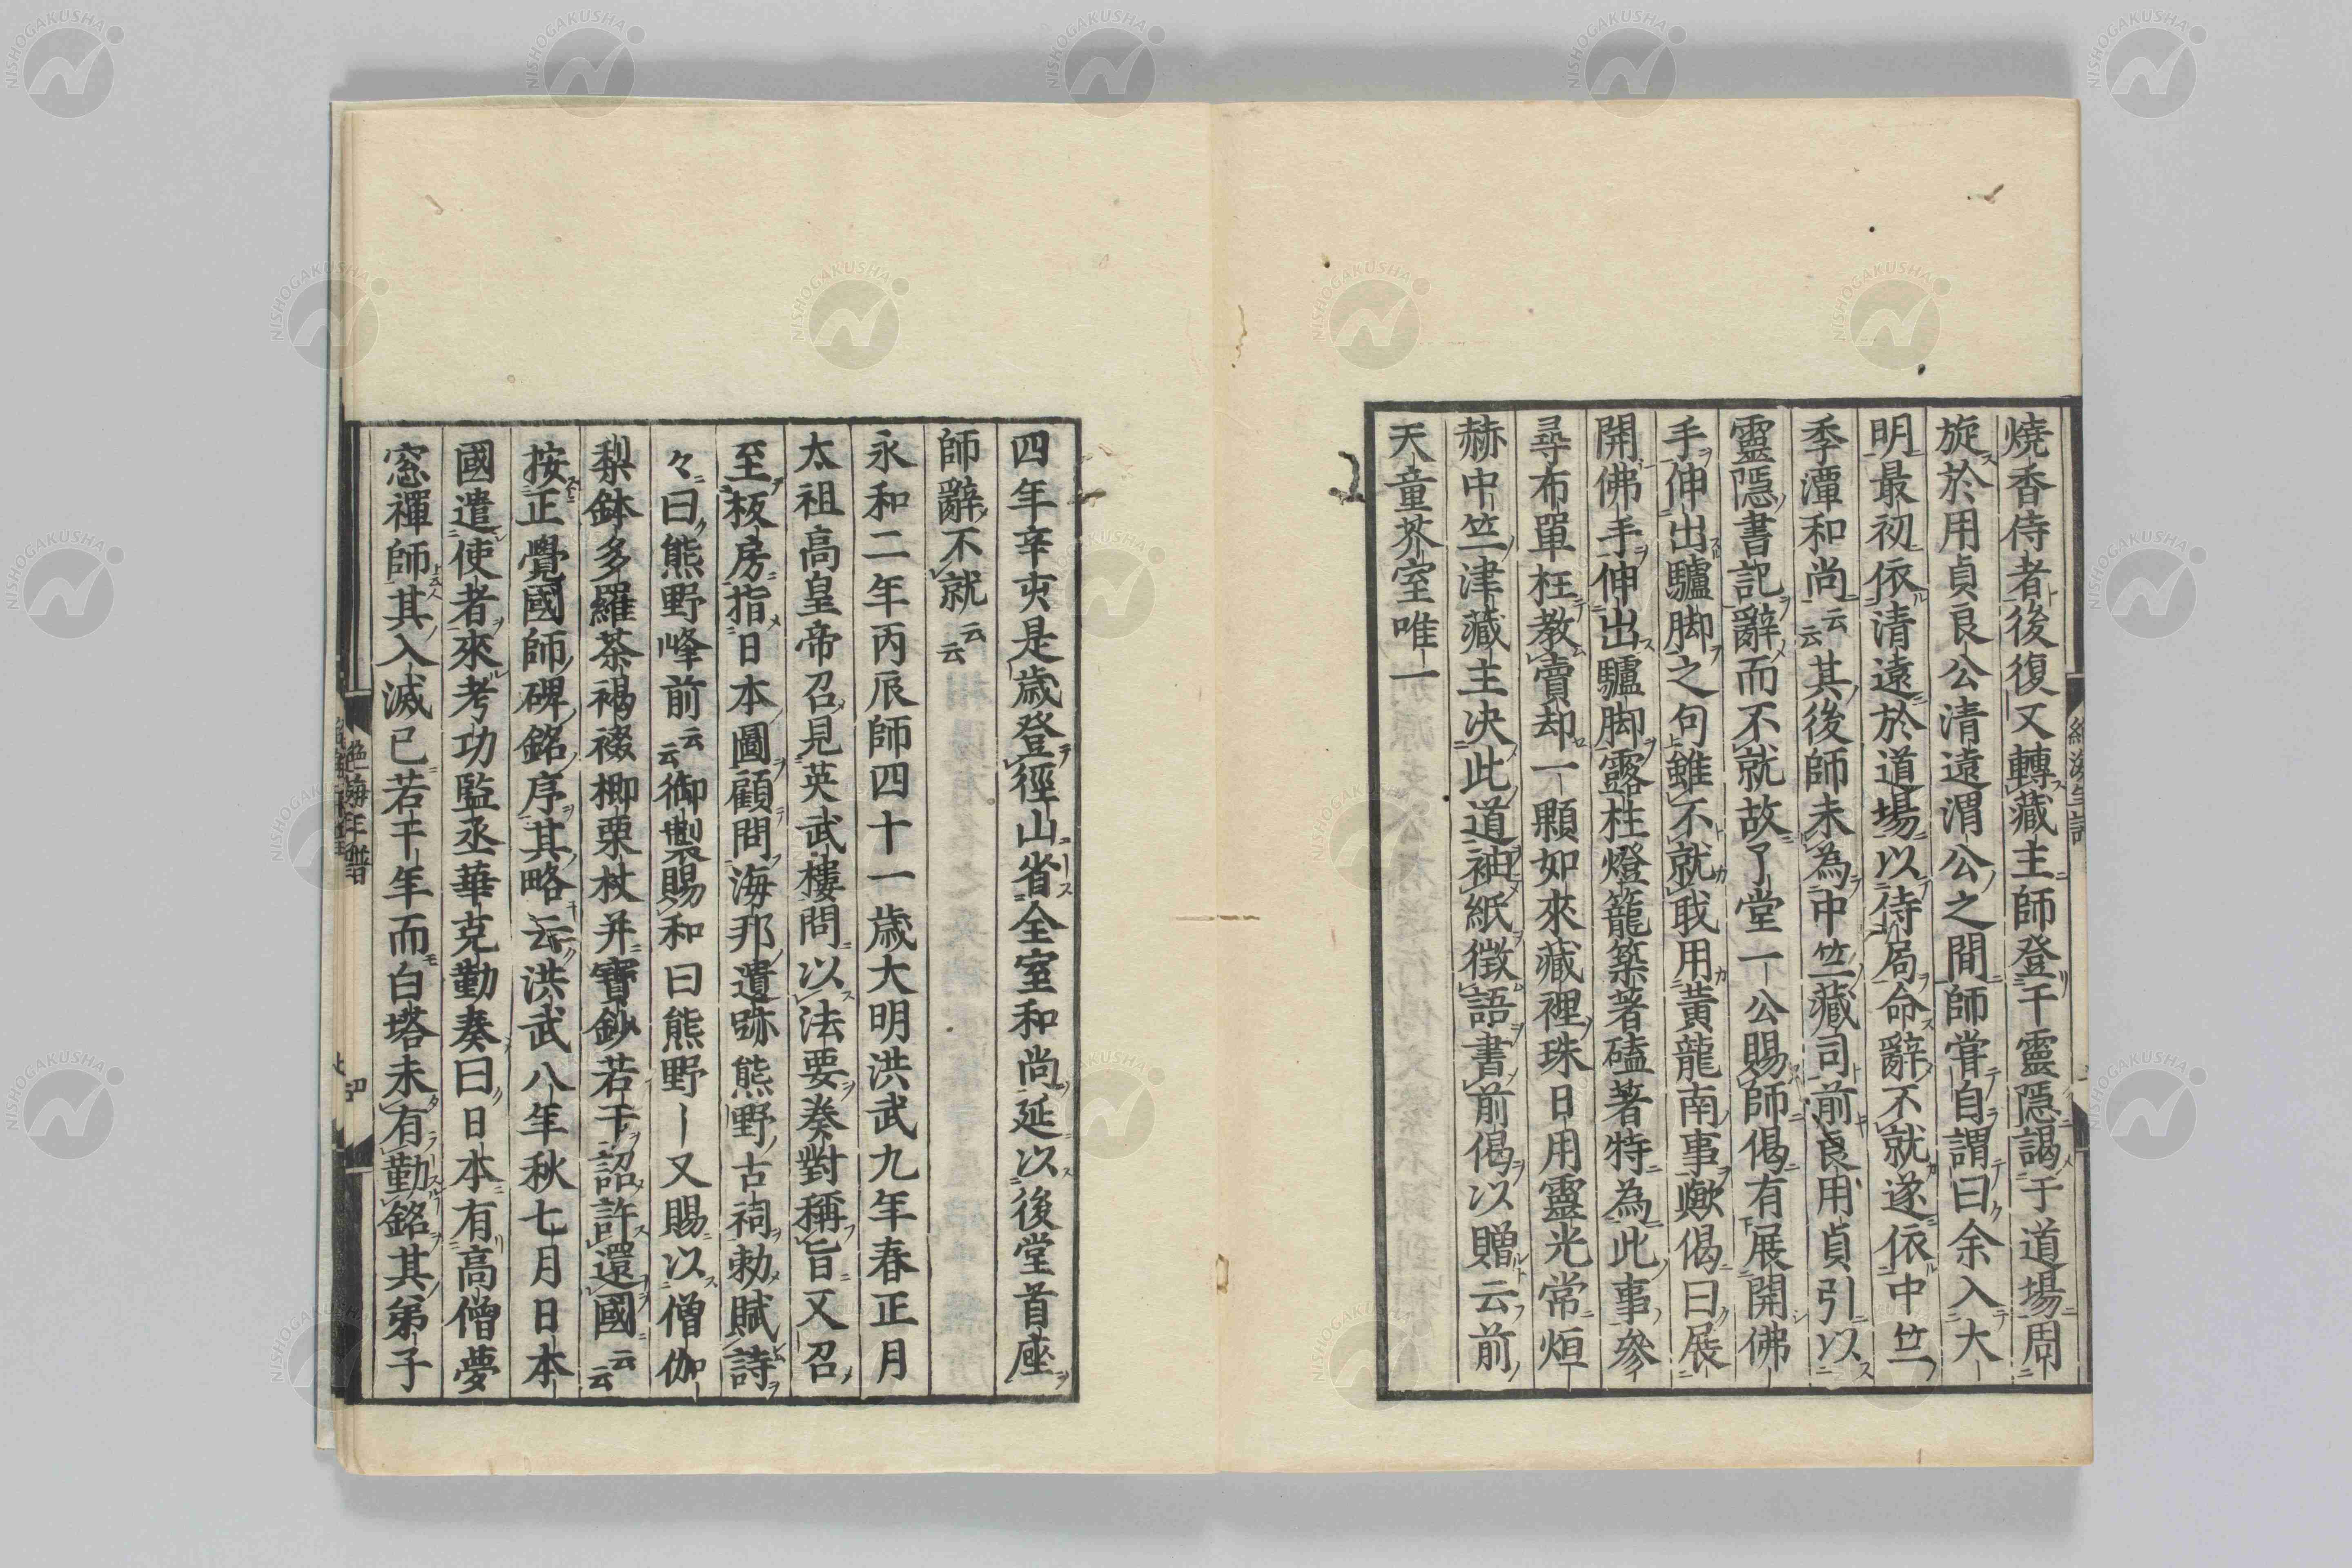 燒香侍者後復又轉藏主師登干靈隱謁于道場周
旋於用貞良公清遠渭公之間師甞自謂曰余入大
明最初依清遠於道場以侍局命辭不就遂依中竺
季潭和尚云云其後師未為中竺藏司前良用貞引以
靈隱書記辭而不就故了堂一公賜師偈有展開佛
手伸出驢脚之句雖不就戢用黃龍南事歟偈曰展
開佛手伸出驢脚露柱燈籠築著磕著特為此事參
尋布單枉教賣却一顆如來藏裡珠日用靈光常烜
赫中竺津藏主决此道袖紙徵語書前偈以贈云前
天童芥室唯一
四年辛亥是歲登徑山省全室和尚延以後堂首座
師辭不就云云
永和二年丙辰師四十一歲大明洪武九年春正月
太祖高皇帝召見英武樓問以法要奏對稱旨又召
至板房指日本圖顧問海邦遺跡熊野古祠勅賦詩
々曰熊野峰前云云御製賜和曰熊野ー又賜以僧伽
梨鉢多羅茶褐裰楖栗杖并寶鈔若干詔許還國云云
按正覺國師碑銘序其略云洪武八年秋七月日本
國遣使者來考功監丞華克勤奏曰日本有高僧夢
窓禪師其入滅已若干年而白塔未有勤銘其弟子
絶海年譜
NISHOGAKUSHA